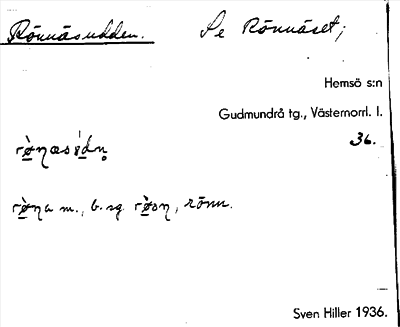 Rönnäsudden.
Se Rönnäset;
Hemsö s:n
Gudmundrå tg., Västernorrl. l.
36.
m., b. sg. , rönn.
Sven Hiller 1936.